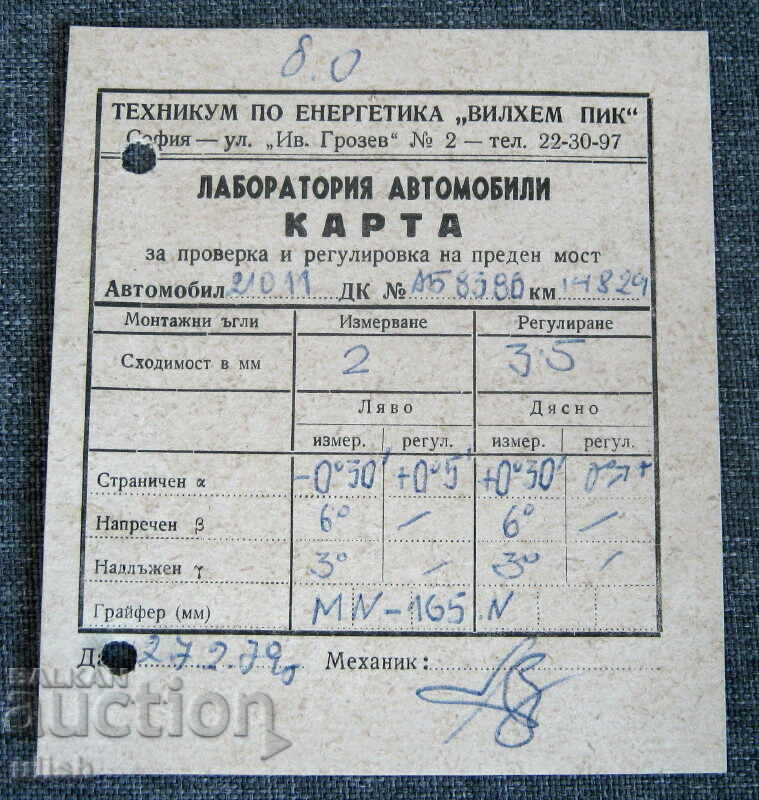 8.0
ТЕХНИКУМ ПО ЕНЕРГЕТИКА „ВИЛХЕМ ПИК“
София — ул. „Ив. Грозев“ № 2 — тел. 22-30-97
ЛАБОРАТОРИЯ АВТОМОБИЛИ
КАРТА
за проверка и регулировка на преден мост
Автомобил 21011 ДК № км
Монтажни ъгли Измерване Регулиране
Сходимост в мм 2 3.5
Ляво Дясно
измер. регул. измер. регул.
Страничен α -0°30' +0°5' +0°30'
Напречен β 6° / 6° /
Надлъжен γ 3° / 3° /
Грайфер (мм) MN-165 N
Механик:
BALKAN
auction